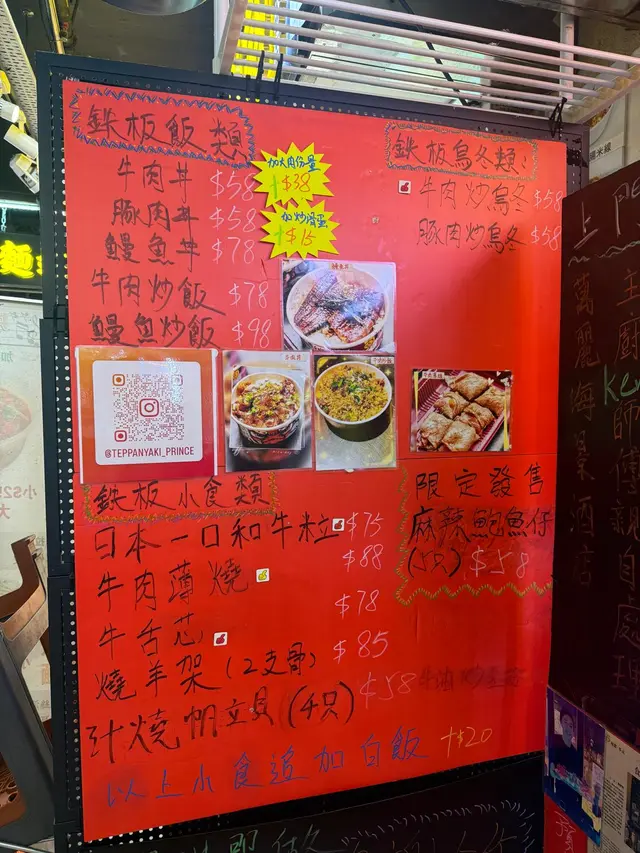 鉄板飯類
牛肉丼 $58
豚肉丼 $58
鰻魚丼 $78
牛肉炒飯 $78
鰻魚炒飯 $98
加大肉份量
+$38
加炒滑蛋
+$15
鉄板烏冬類:
牛肉炒烏冬 $58
豚肉炒烏冬 $58
@TEPPANYAKI_PRINCE
鉄板小食類
日本一口和牛粒 $75
$88
牛肉薄燒
$78
牛舌芯
$85
燒羊架 (2支骨)
汁燒帆立貝 (4只) $58
以上小食追加白飯 +$20
限定發售
麻辣鮑魚仔
(5只) $58
上門
主廚
Ke
師傅親自處理
萬麗海景酒店
麵